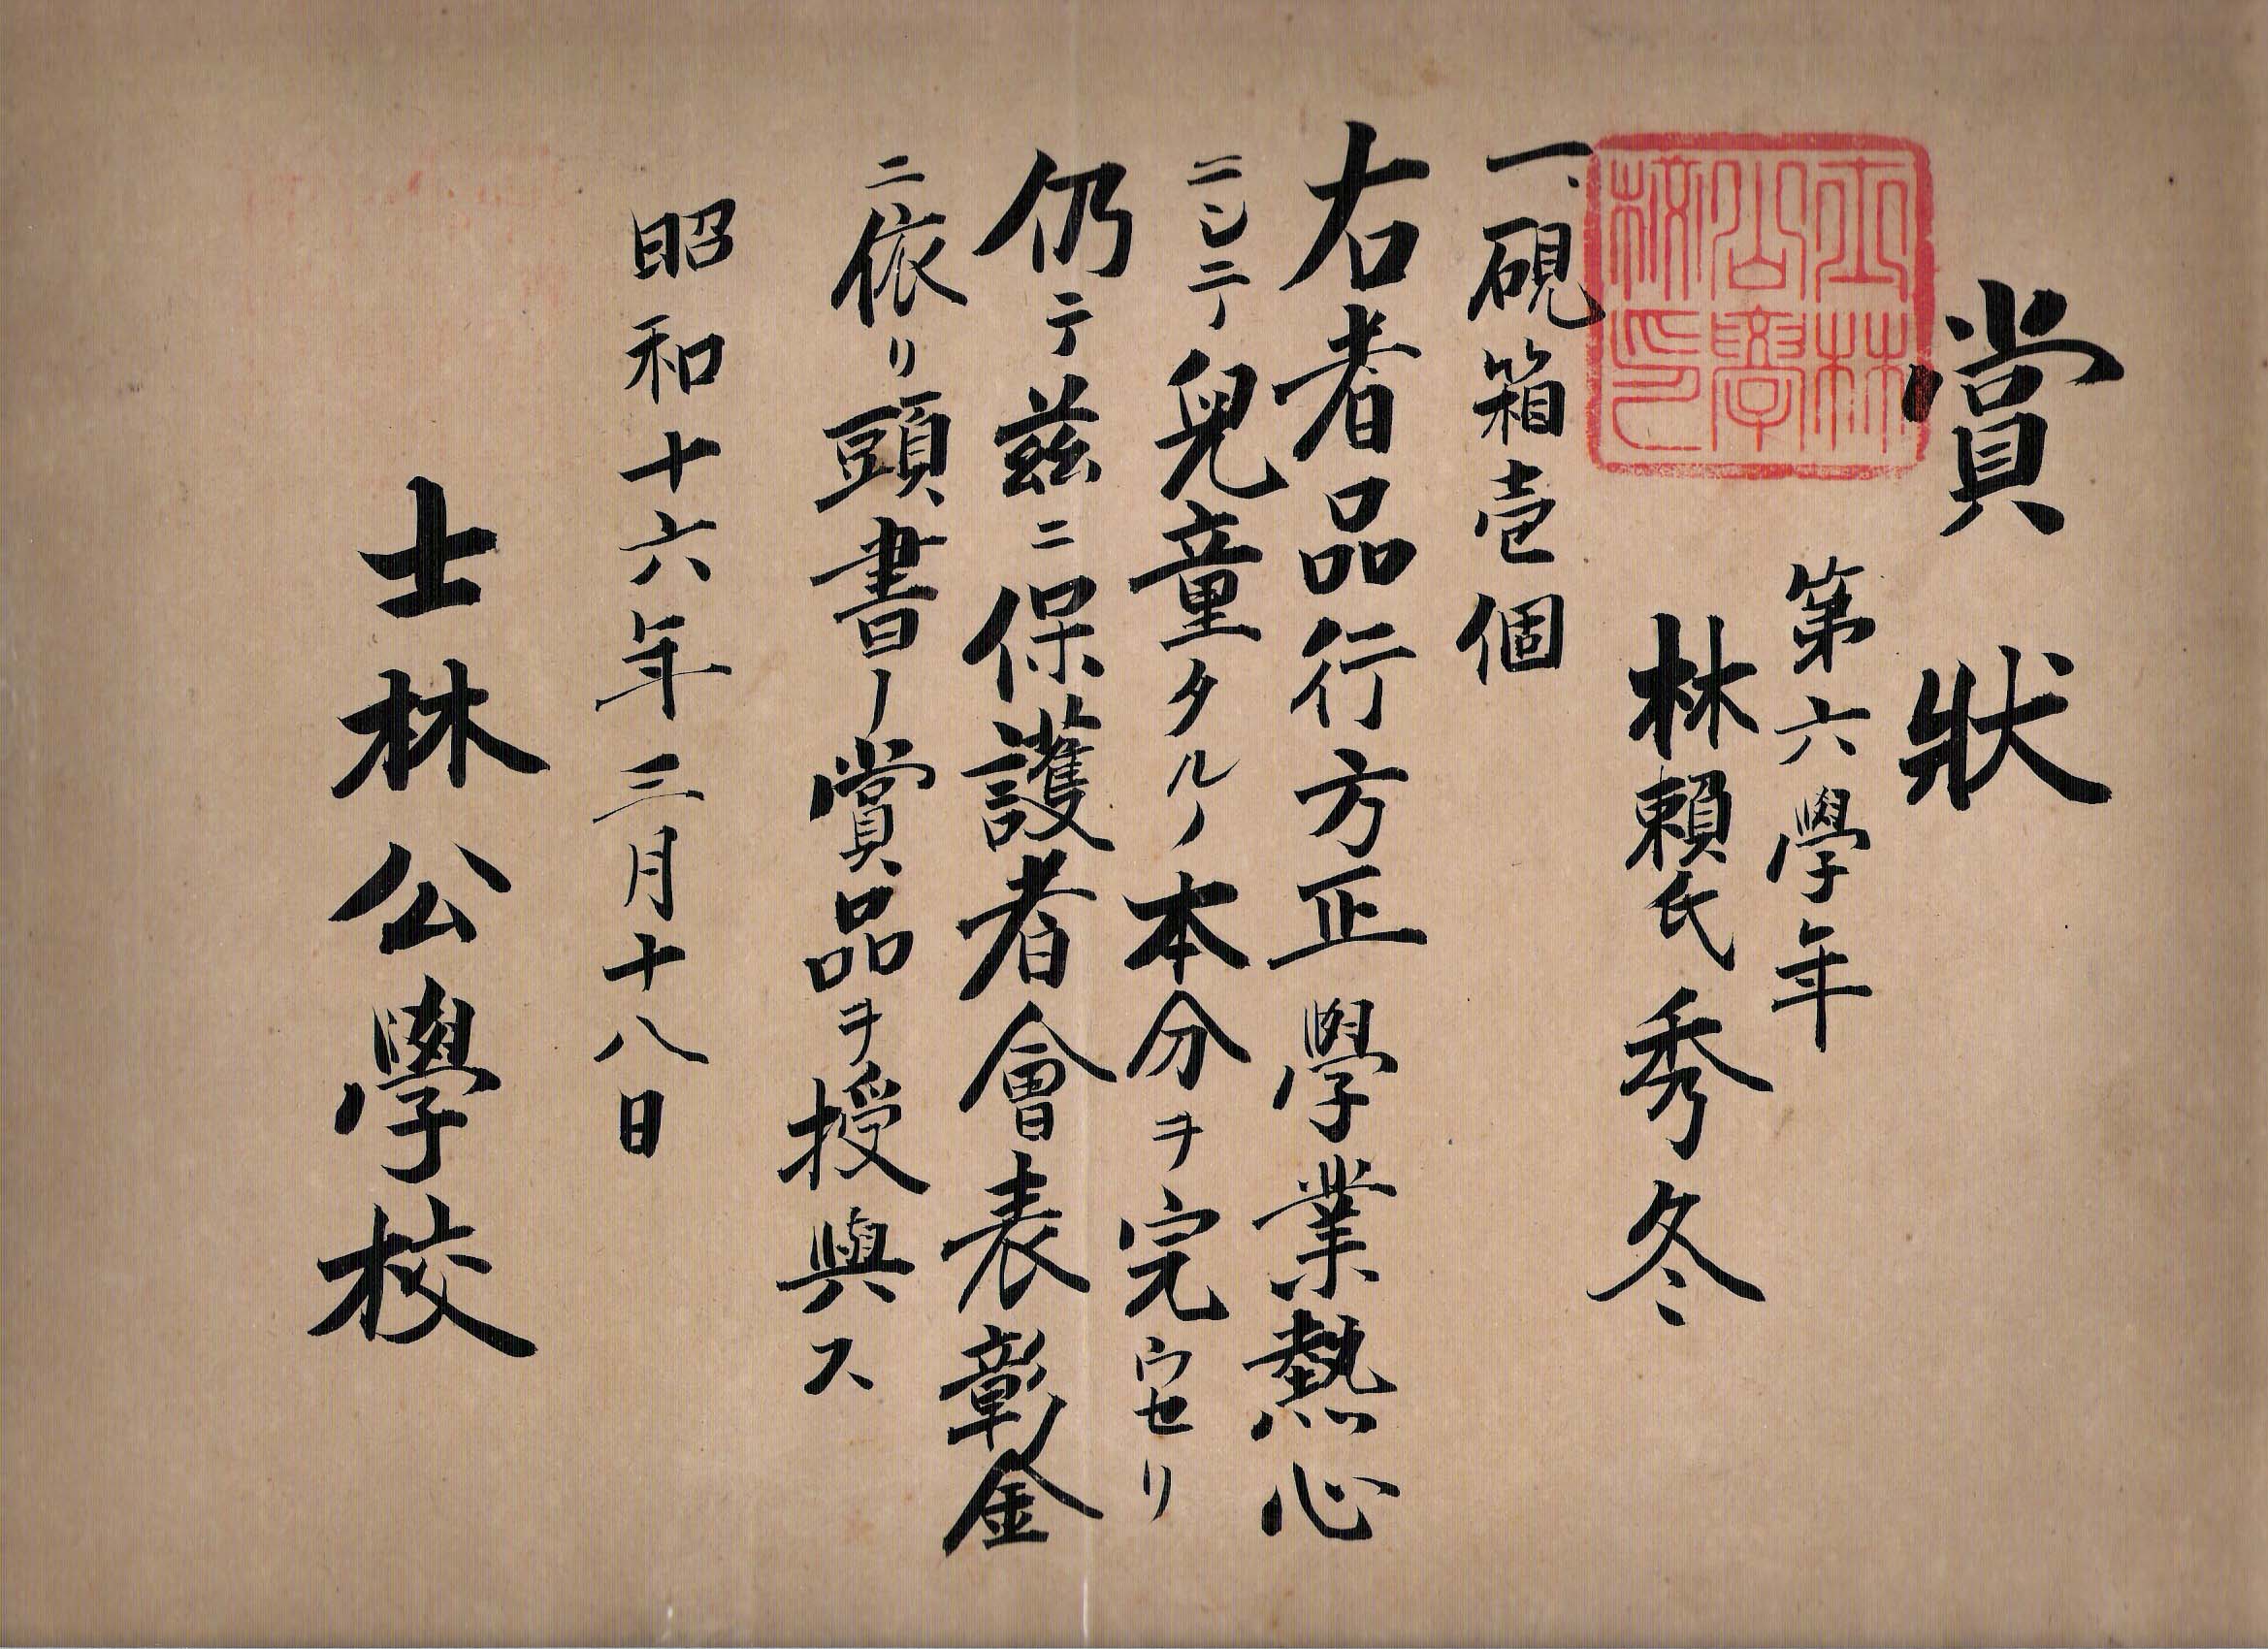 賞狀
第六學年
林賴氏秀冬
士林公學校印
一、硯箱壱個
右者品行方正學業熱心
ニシテ兒童タルノ本分ヲ完ウセリ
仍テ茲ニ保護者會表彰金
ニ依リ頭書ノ賞品ヲ授與ス
昭和十六年三月十八日
士林公學校